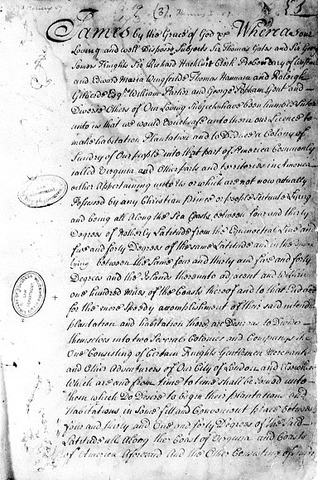 James by the Grace of God &c Whereas our
Loving and well Disposed Subjects Sir Thomas Gates and Sir George
Somers Knights Sir Richard Hackluit Clerk Prebendary of
and Edward Maria Wingfield Thomas Hannam and Raleigh
Gilberde Esqrs William Parker and George Popham Gent and
Divers Others of Our Loving Subjects have been humble
unto us that we would vouchsafe unto them our Licence to
make habitation Plantation and to Deduce a Colony of
Sundry of Our people into that part of America Commonly
called Virginia and other parts and territories in America
either Appertaining unto us or which are not now actually
possessed by any Christian Prince or people Scituate Lying
and being all Along the Sea Coasts between four and thirty
Degrees of Northerly Latitude from the Equinoctial Line and
five and forty Degrees of the same Latitude and in the
lying between the same four and thirty and five and forty
Degrees and the Islands thereunto adjacent and within
one hundred miles of the Coasts thereof and to that End and
for the more Speedy accomplishment of their said intended
plantation and habitation there are Desirous to Divide
themselves into two Several Colonies and Companys the
One Consisting of Certain Knights Gentlemen Merchants
and Other Adventurers of Our City of London and Elsewhere
Which are and from time to time shall be Joined unto
them which Do Desire to begin their plantation and
Habitations in Some fitt and Convenient place between
four and thirty and One and forty Degrees of the said
Latitude all Along the Coast of Virginia and Coasts
of America Aforesaid And the Other Consisting of